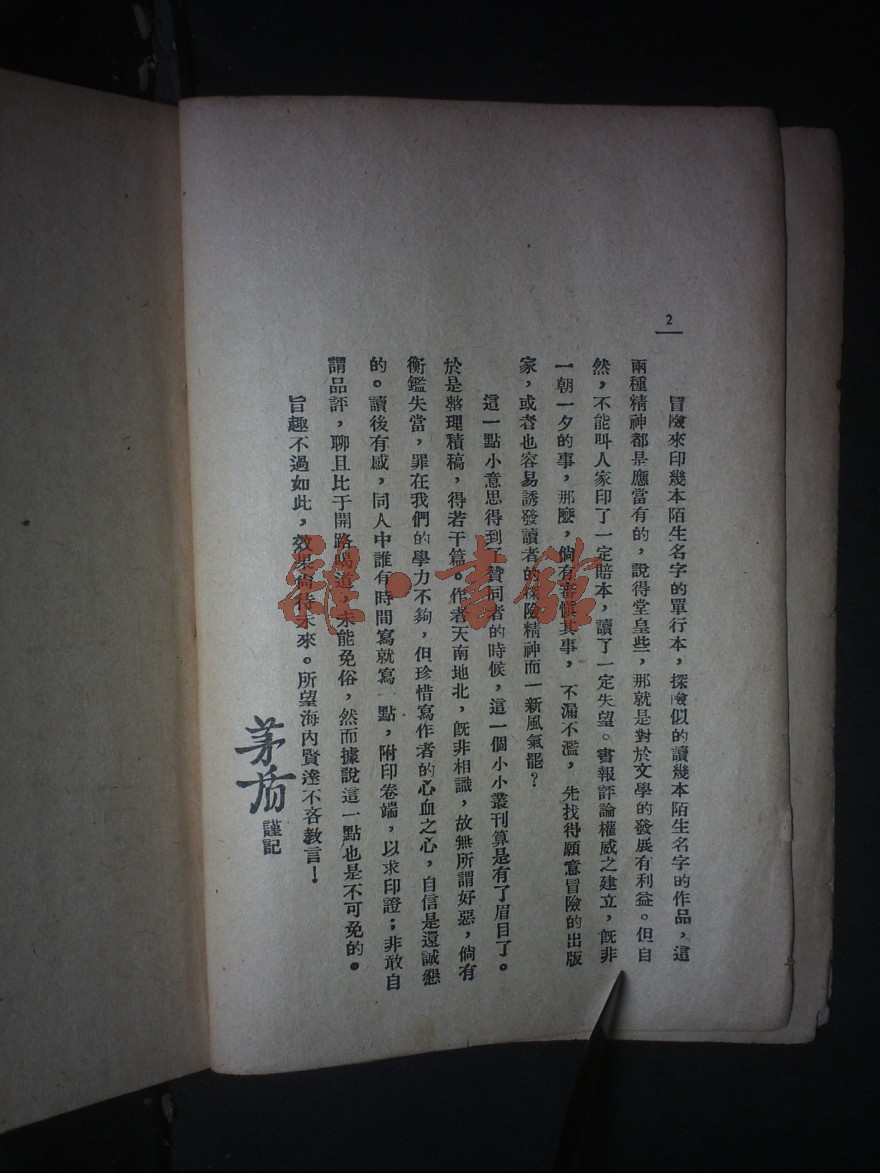 2
冒險來印幾本陌生名字的單行本，探險似的讀幾本陌生名字的作品，這
兩種精神都是應當有的，說得堂皇些，那就是對於文學的發展有利益。但自
然，不能叫人家印了一定賠本，讀了一定失望。書報評論權威之建立，既非
一朝一夕的事，那麼，倘有審慎其事，不漏不濫，先找得願意冒險的出版
家，或者也容易誘發讀者的探險精神而一新風氣罷？
這一點小意思得到了贊同者的時候，這一個小小叢刊算是有了眉目了。
於是整理積稿，得若干篇。作者天南地北，既非相識，故無所謂好惡，倘有
衡鑑失當，罪在我們的學力不夠，但珍惜寫作者的心血之心，自信是還誠懇
的。讀後有感，同人中誰有時間寫就寫一點，附印卷端，以求印證；非敢自
謂品評，聊且比于開路喝道，未能免俗，然而據說這一點也是不可免的。
旨趣不過如此，效果尚待未來。所望海內賢達不吝教言！
茅盾 謹記
雜·書館